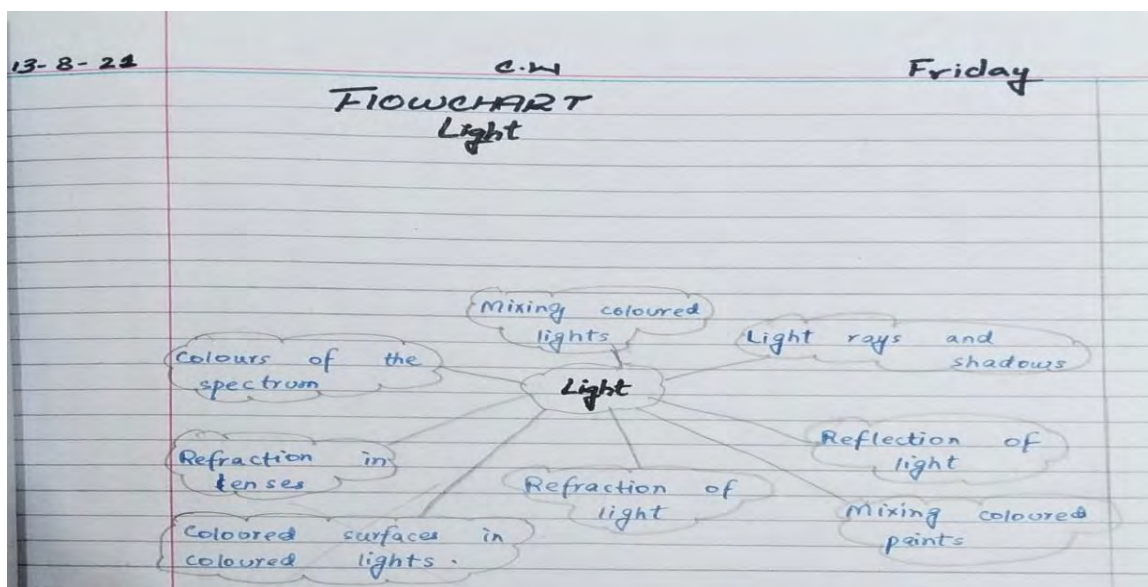 13-8-21
C.W
Friday
FlOWCHART
Light
Mixing coloured
lights
Light rays and
shadows
Colours of the
spectrum
Light
Reflection of
light
Refraction in
lenses
Refraction of
light
Mixing coloured
paints
Coloured surfaces in
coloured lights.